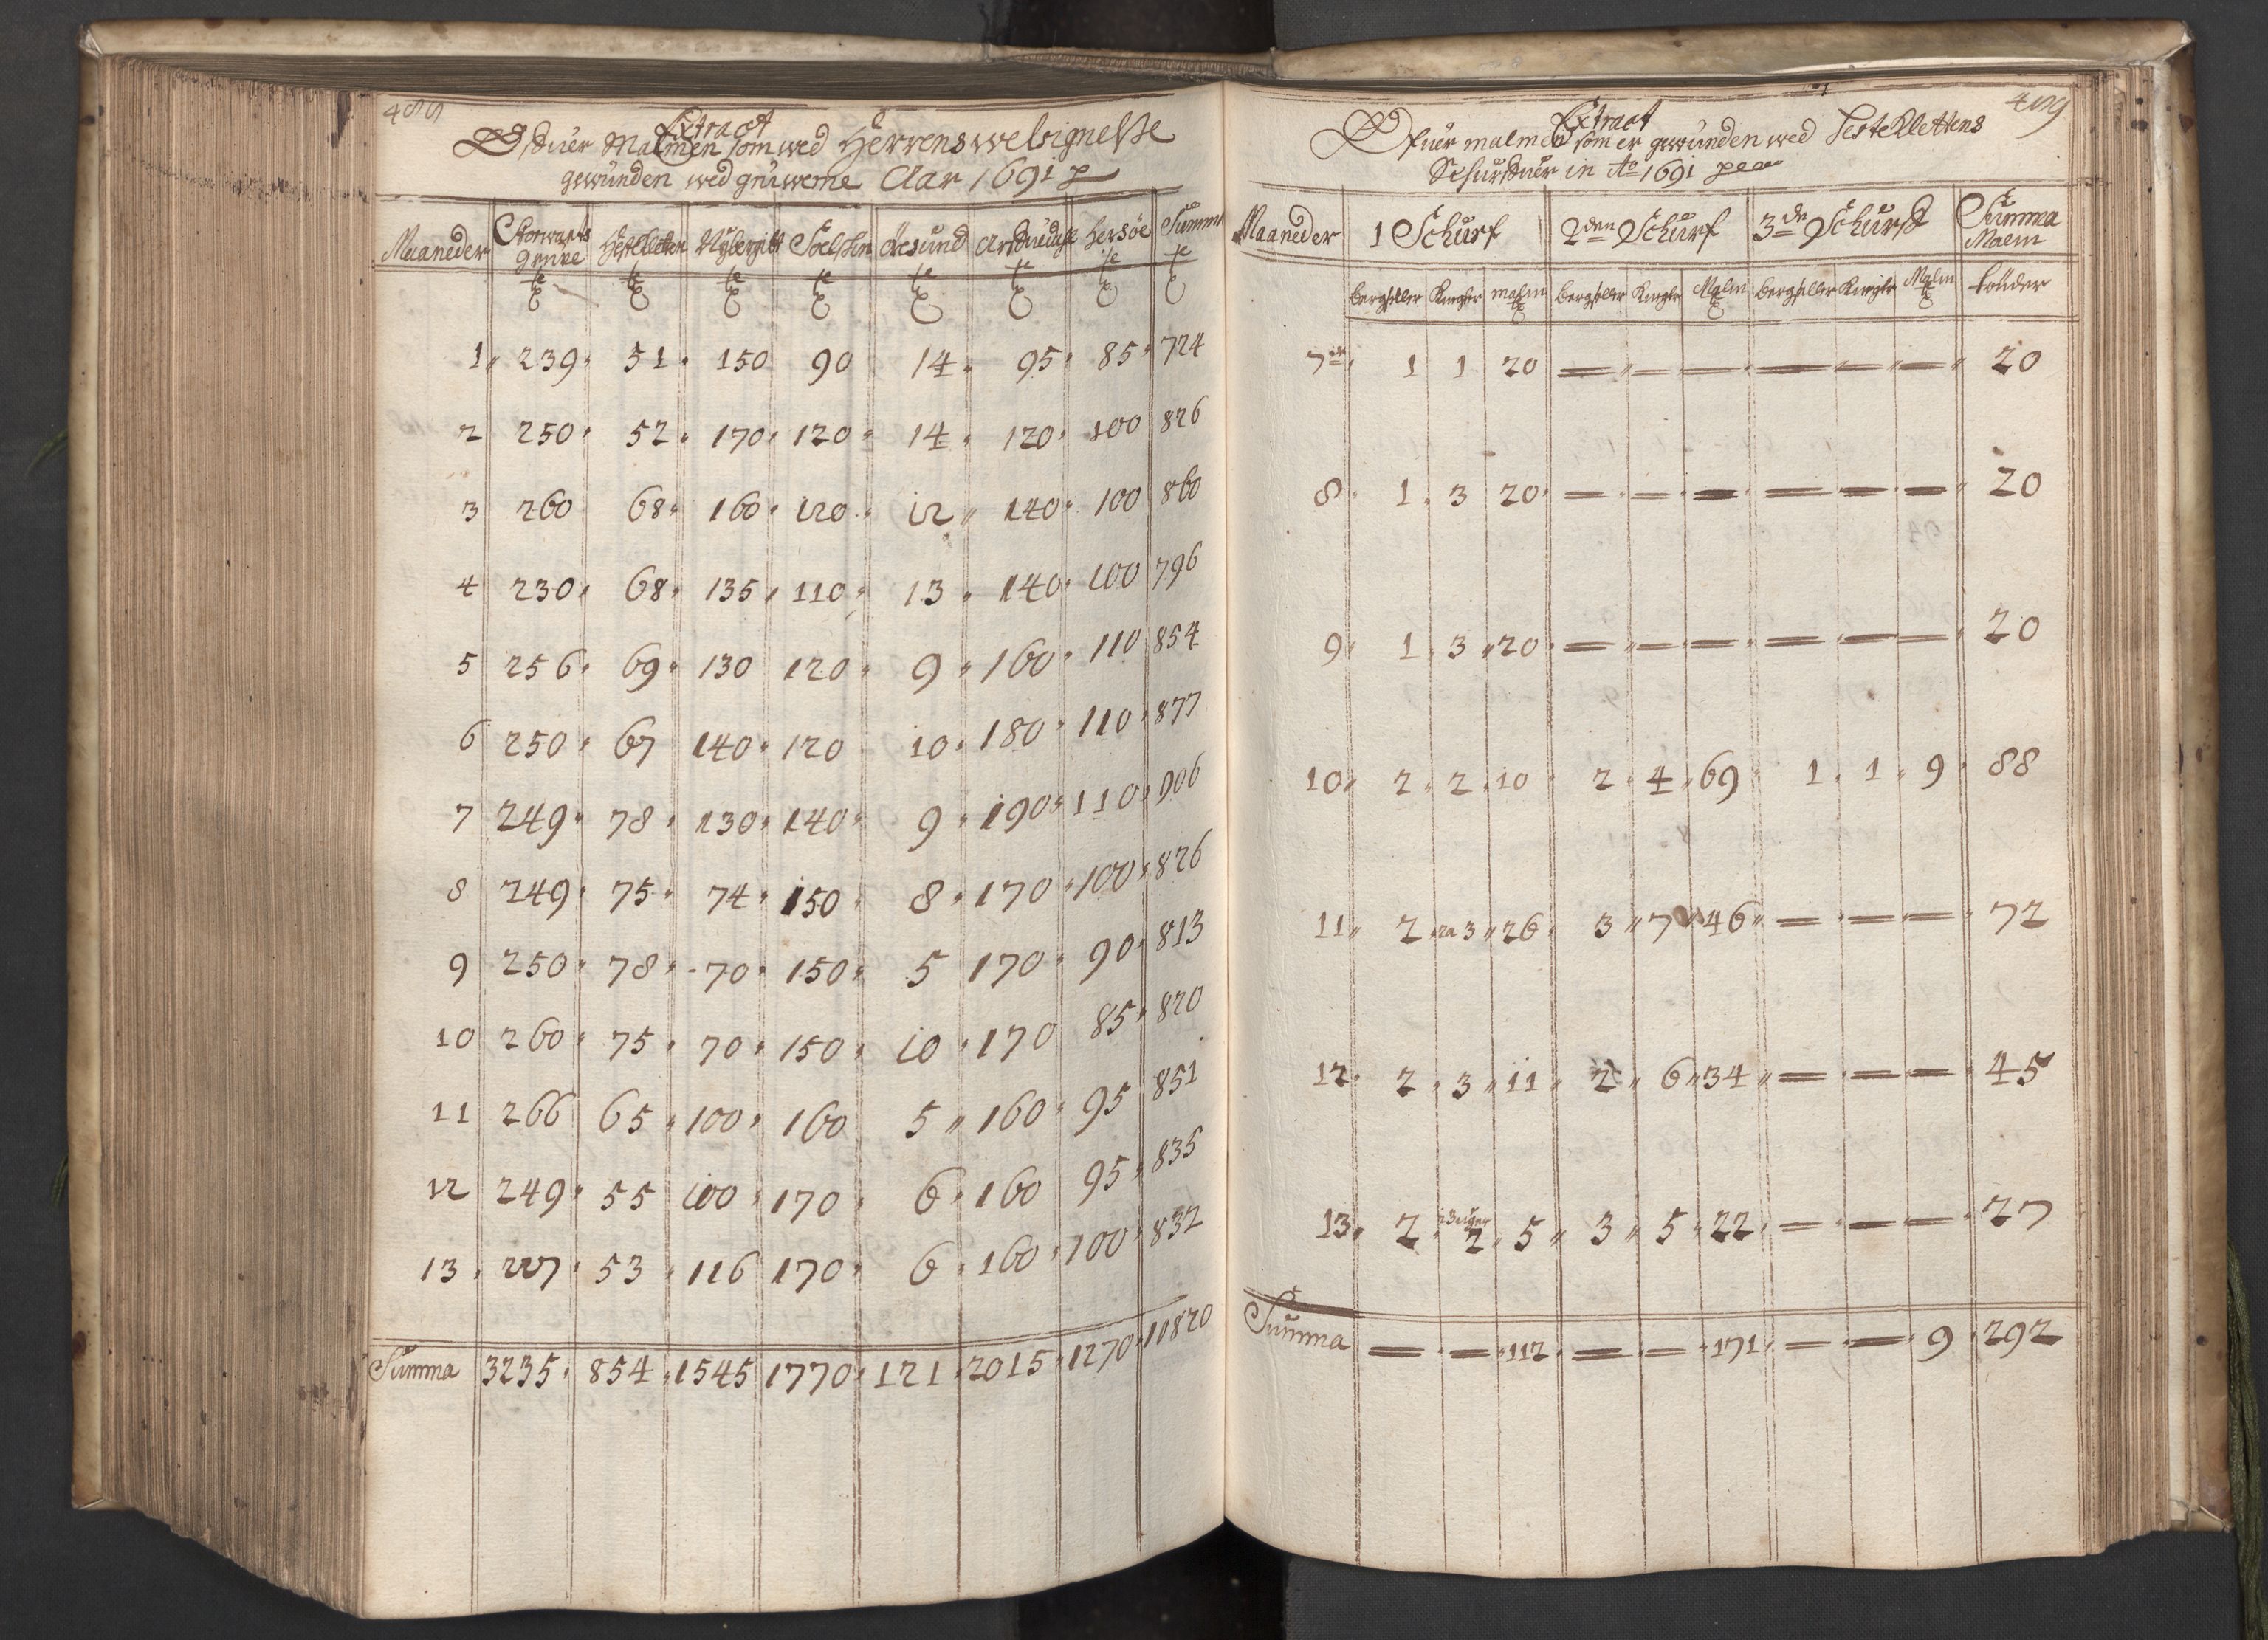 Extract
Offuer Malmen som wed Herrens welsignelsse
gewünden wed grüwerne Aar 1691
Maaneder Storwarts Hesteletten Nÿbergitt Soelskin Öresund Arffuedahl Hersöe Summa
Grufue
1 239 51 150 90 14 95 85 724
2 250 52 170 120 14 120 100 826
3 260 68 160 120 12 140 100 860
4 230 68 135 110 13 140 100 796
5 256 69 130 120 9 160 110 854
6 250 67 140 120 10 180 110 877
7 249 78 130 140 9 190 110 906
8 249 75 74 150 8 170 100 826
9 250 78 70 150 5 170 90 813
10 260 75 70 150 10 170 85 820
11 266 65 100 160 5 160 95 851
12 249 55 100 170 6 160 95 835
13 227 53 116 170 6 160 100 832
Summa 3235 854 1545 1770 121 2015 1270 10820
459
Extract
Offuer malmen som er gewünden wed Hesteklettens
Schurffuer in Ao 1691
Maaneder 1 Schurf 2den Schurf 3de Schurff Summa
Malm
bergfeller Kngter malm bergfeller Kngte Malm bergfeller Kngte Malm tönder
7de 1 1 20 — — — — — — 20
8 1 3 20 — — — — — — 20
9 1 3 20 — — — — — — 20
10 2 2 10 2 4 69 1 1 9 88
11 2 3 26 3 7 46 — — — 72
12 2 3 11 2 6 34 — — — 45
13 2 2 5 3 5 22 — — — 27
Summa — — 112 — — 171 — — 9 292